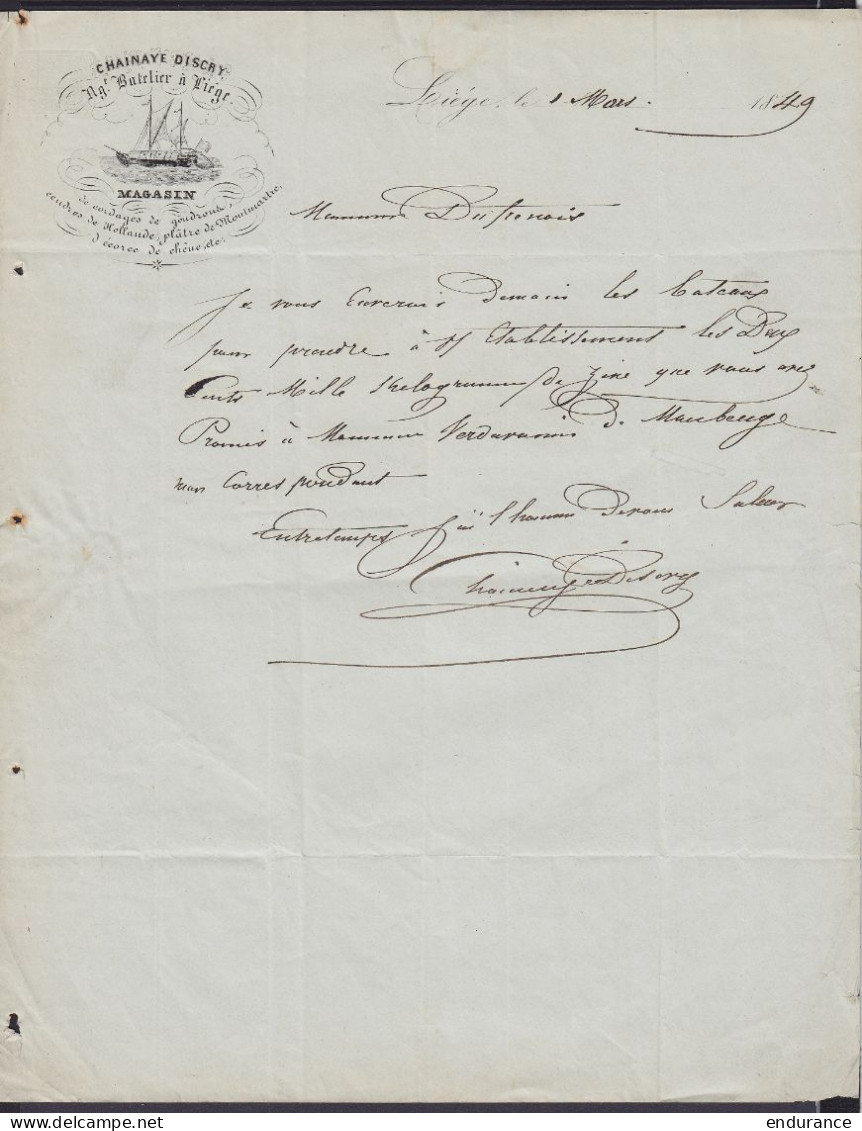 CHAINAYE DISCRY
Ng.t Batelier à Liége.
MAGASIN
de cordages de goudrons,
cendres de Hollande, plâtre de Montmartre,
d'écorce de chêne, etc.
Liége, le 1 Mars 1849
Monsieur
Je vous Enverais demain les bateaux
pour prendre à Etablissement les Deux
Cents Mille Kelogramme de Zinc que vous avez
Promis à Monsieur de Maubeuge
mon Correspondant
Entretemps J'ai l'honneur de vous Saluer
Chainaye Discry
endurance